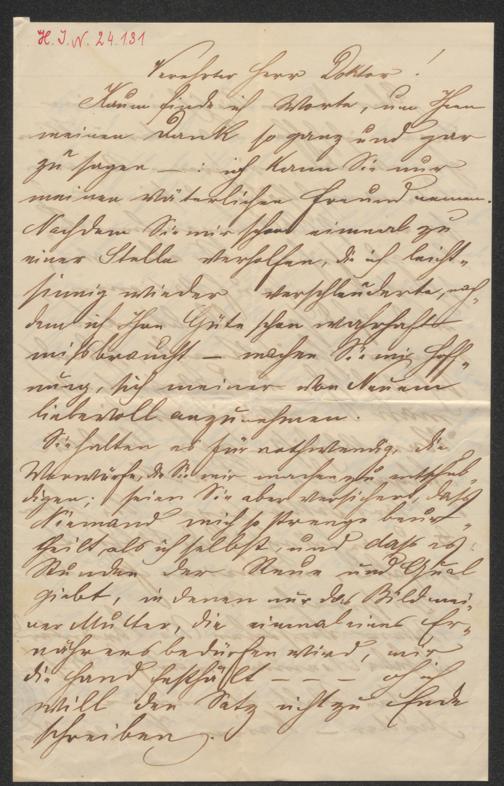 H. I. N. 24.131
Verehrter Herr Doktor!
Kaum finde ich Worte, um Ihnen
meinen Dank so ganz und gar
zu sagen — : ich kann Sie nur
meinen väterlichen Freund nennen.
Nachdem Sie mir schon einmal zu
einer Stelle verholfen, die ich leicht-
sinnig wieder verschleuderte, nach-
dem ich Ihre Güte schon wahrhaft
mißbraucht — machen Sie mir Hoff-
nung, sich meiner von Neuem
liebevoll anzunehmen.
Sie halten es für nothwendig, die
Vorwürfe, die Sie mir machen zu entschul-
digen; seien Sie aber versichert, daß
Niemand mich so strenge beur-
theilt, als ich selbst, und daß es
Stunden der Reue und Qual
giebt, in denen nur das Bild mei-
ner Mutter, die einmal eines Er-
nährers bedürfen wird, mir
die Hand festhält – – – ich
will den Satz nicht zu Ende
schreiben.